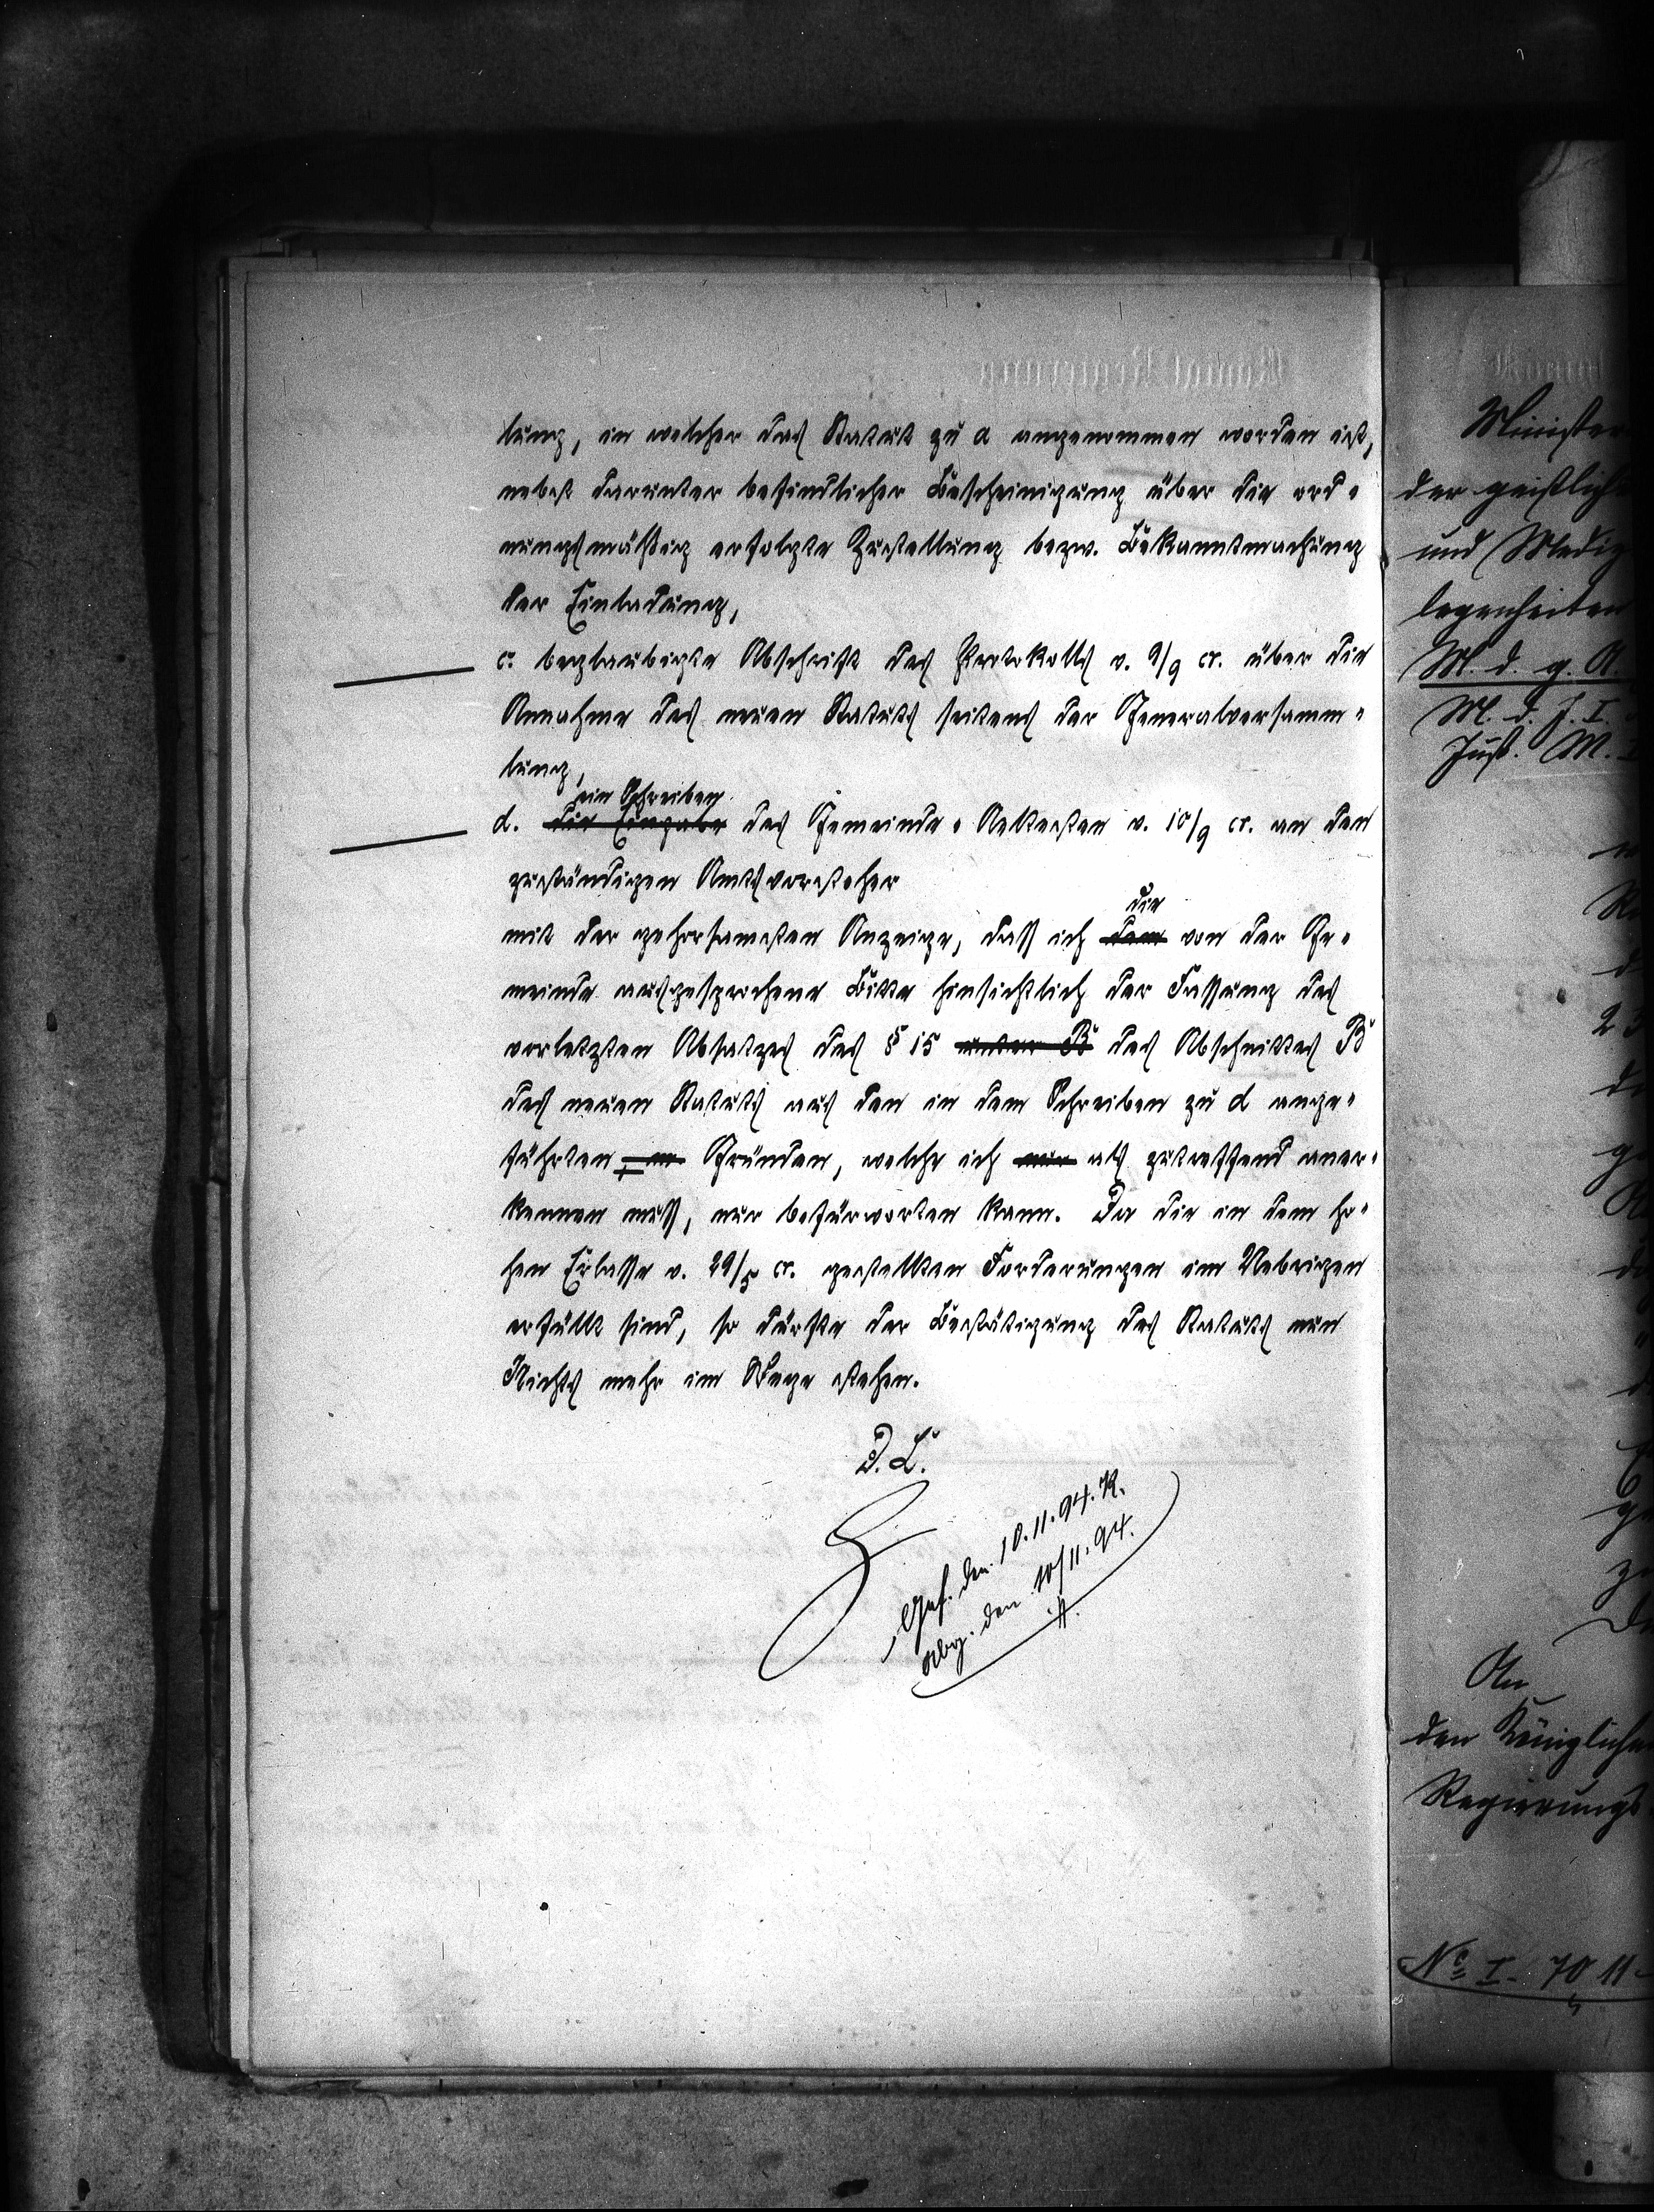 lung, in welcher das Statut zu a angenommen worden ist,
nebst darunter befindlicher Bescheinigung über die ord-
nungsmäßig erfolgte Zustellung bezw. Bekanntmachung
der Einladung,
c. beglaubigte Abschrift des Protokolls v. 9/9 cr. über die
Annahme des neuen Statuts seitens der Generalversamm-
lung,
ein Schreiben
d. die Eingabe des Gemeinde-Aeltesten v. 10/9 cr. an den
zuständigen Amtsvorsteher
die
mit der gehorsamsten Anzeige, dass ich dem von der Ge-
meinde ausgesprochene Bitte hinsichtlich der Fassung des
vorletzten Absatzes des § 15 unter B des Abschnittes B
des neuen Statuts aus den in dem Schreiben zu d ange-
führten Gründen, welche ich nur als zutreffend aner-
kennen muss, nur befürworten kann. Da die in dem ho-
hen Erlasse v. 29/5 cr. gestellten Forderungen im Uebrigen
erfüllt sind, so dürfte der Bestätigung des Statuts nun
Nichts mehr im Wege stehen.
D. L.
Gef. den 10.11.94. K.
Abg. den 10/11.94.
Minister
der geistlich
und Mediz
legenheiten
M. d. g. A.
M. d. J. I.
Just. M.
An
den Königliche
Regierungs
No I. 7011